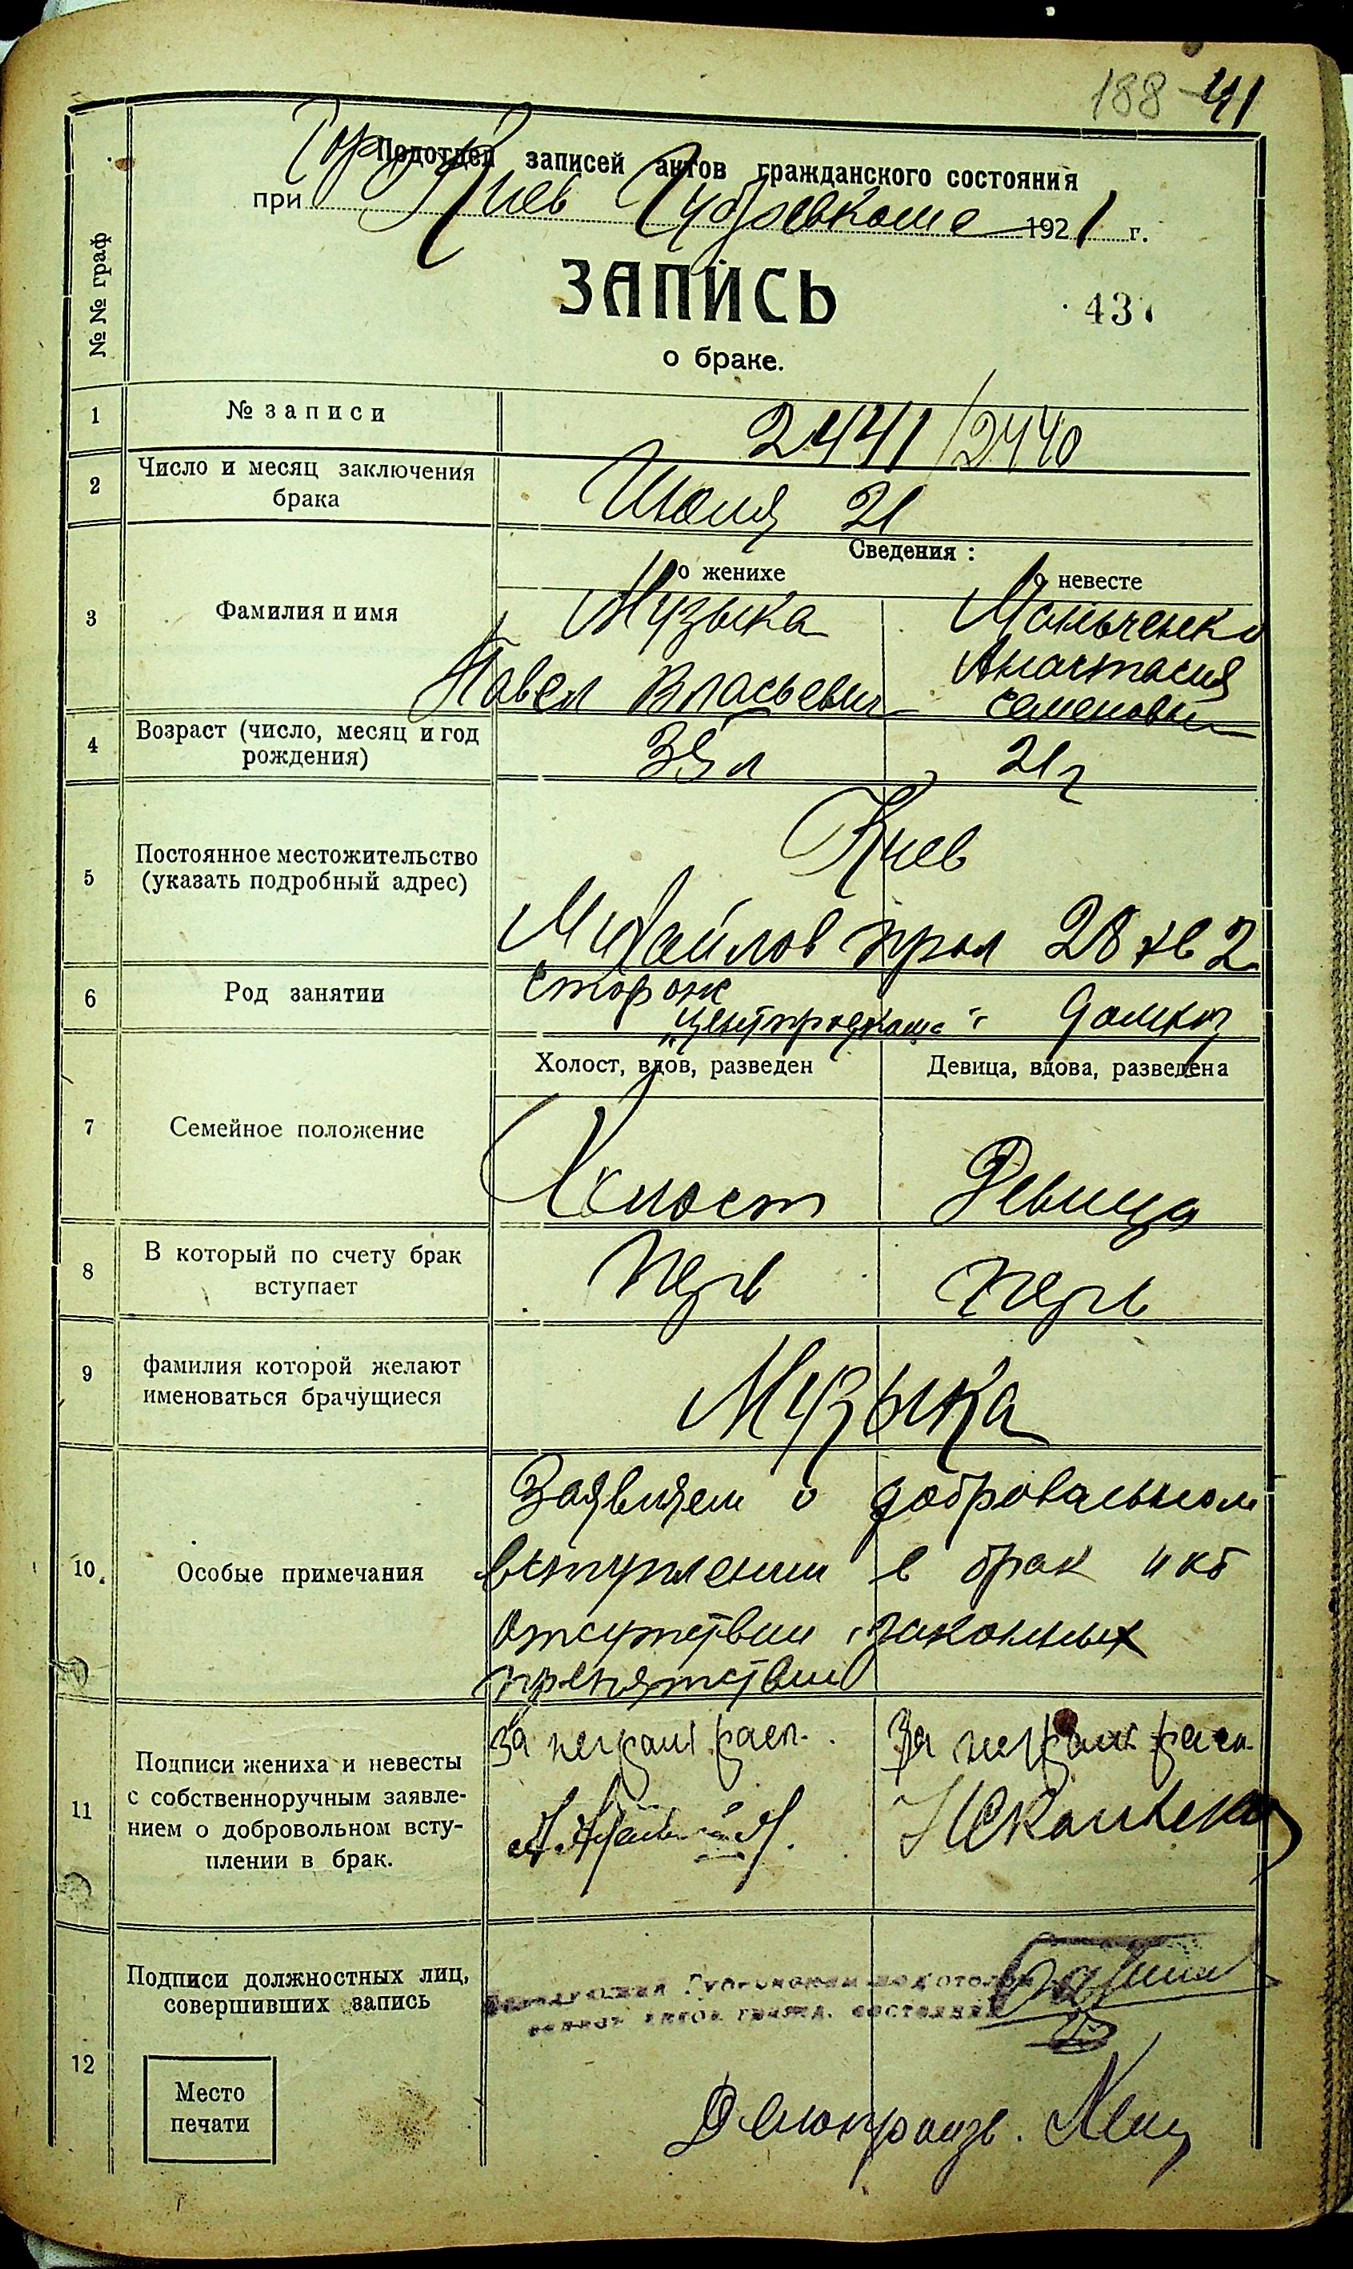 188 41
Подотдел записей актов гражданского состояния
Гор
при Киев Губревкоме 1921 г.
ЗАПИСЬ
437
о браке.
№ № граф
1 № записи 2441/2440
2 Число и месяц заключения
брака Июля 21
Сведения :
о женихе о невесте
3 Фамилия и имя Музыка
Павел Власьевич
Анастасия
Семеновн
4 Возраст (число, месяц и год
рождения) 21 г
5 Постоянное местожительство
(указать подробный адрес) Киев
Михайлов 28 кв 2
6 Род занятии сторож
Холост, вдов, разведен Девица, вдова, разведена
7 Семейное положение Холост Девица
8 В который по счету брак
вступает перв перв
9 фамилия которой желают
именоваться брачущиеся Музыка
10. Особые примечания Заявляем о добровольном
вступлении в брак и об
отсутствии законных
препятствий
11 Подписи жениха и невесты
с собственноручным заявле-
нием о добровольном всту-
плении в брак.
За неграм расп. За неграм расп.
12 Подписи должностных лиц,
совершивших запись
Место
печати
Делопроизв.